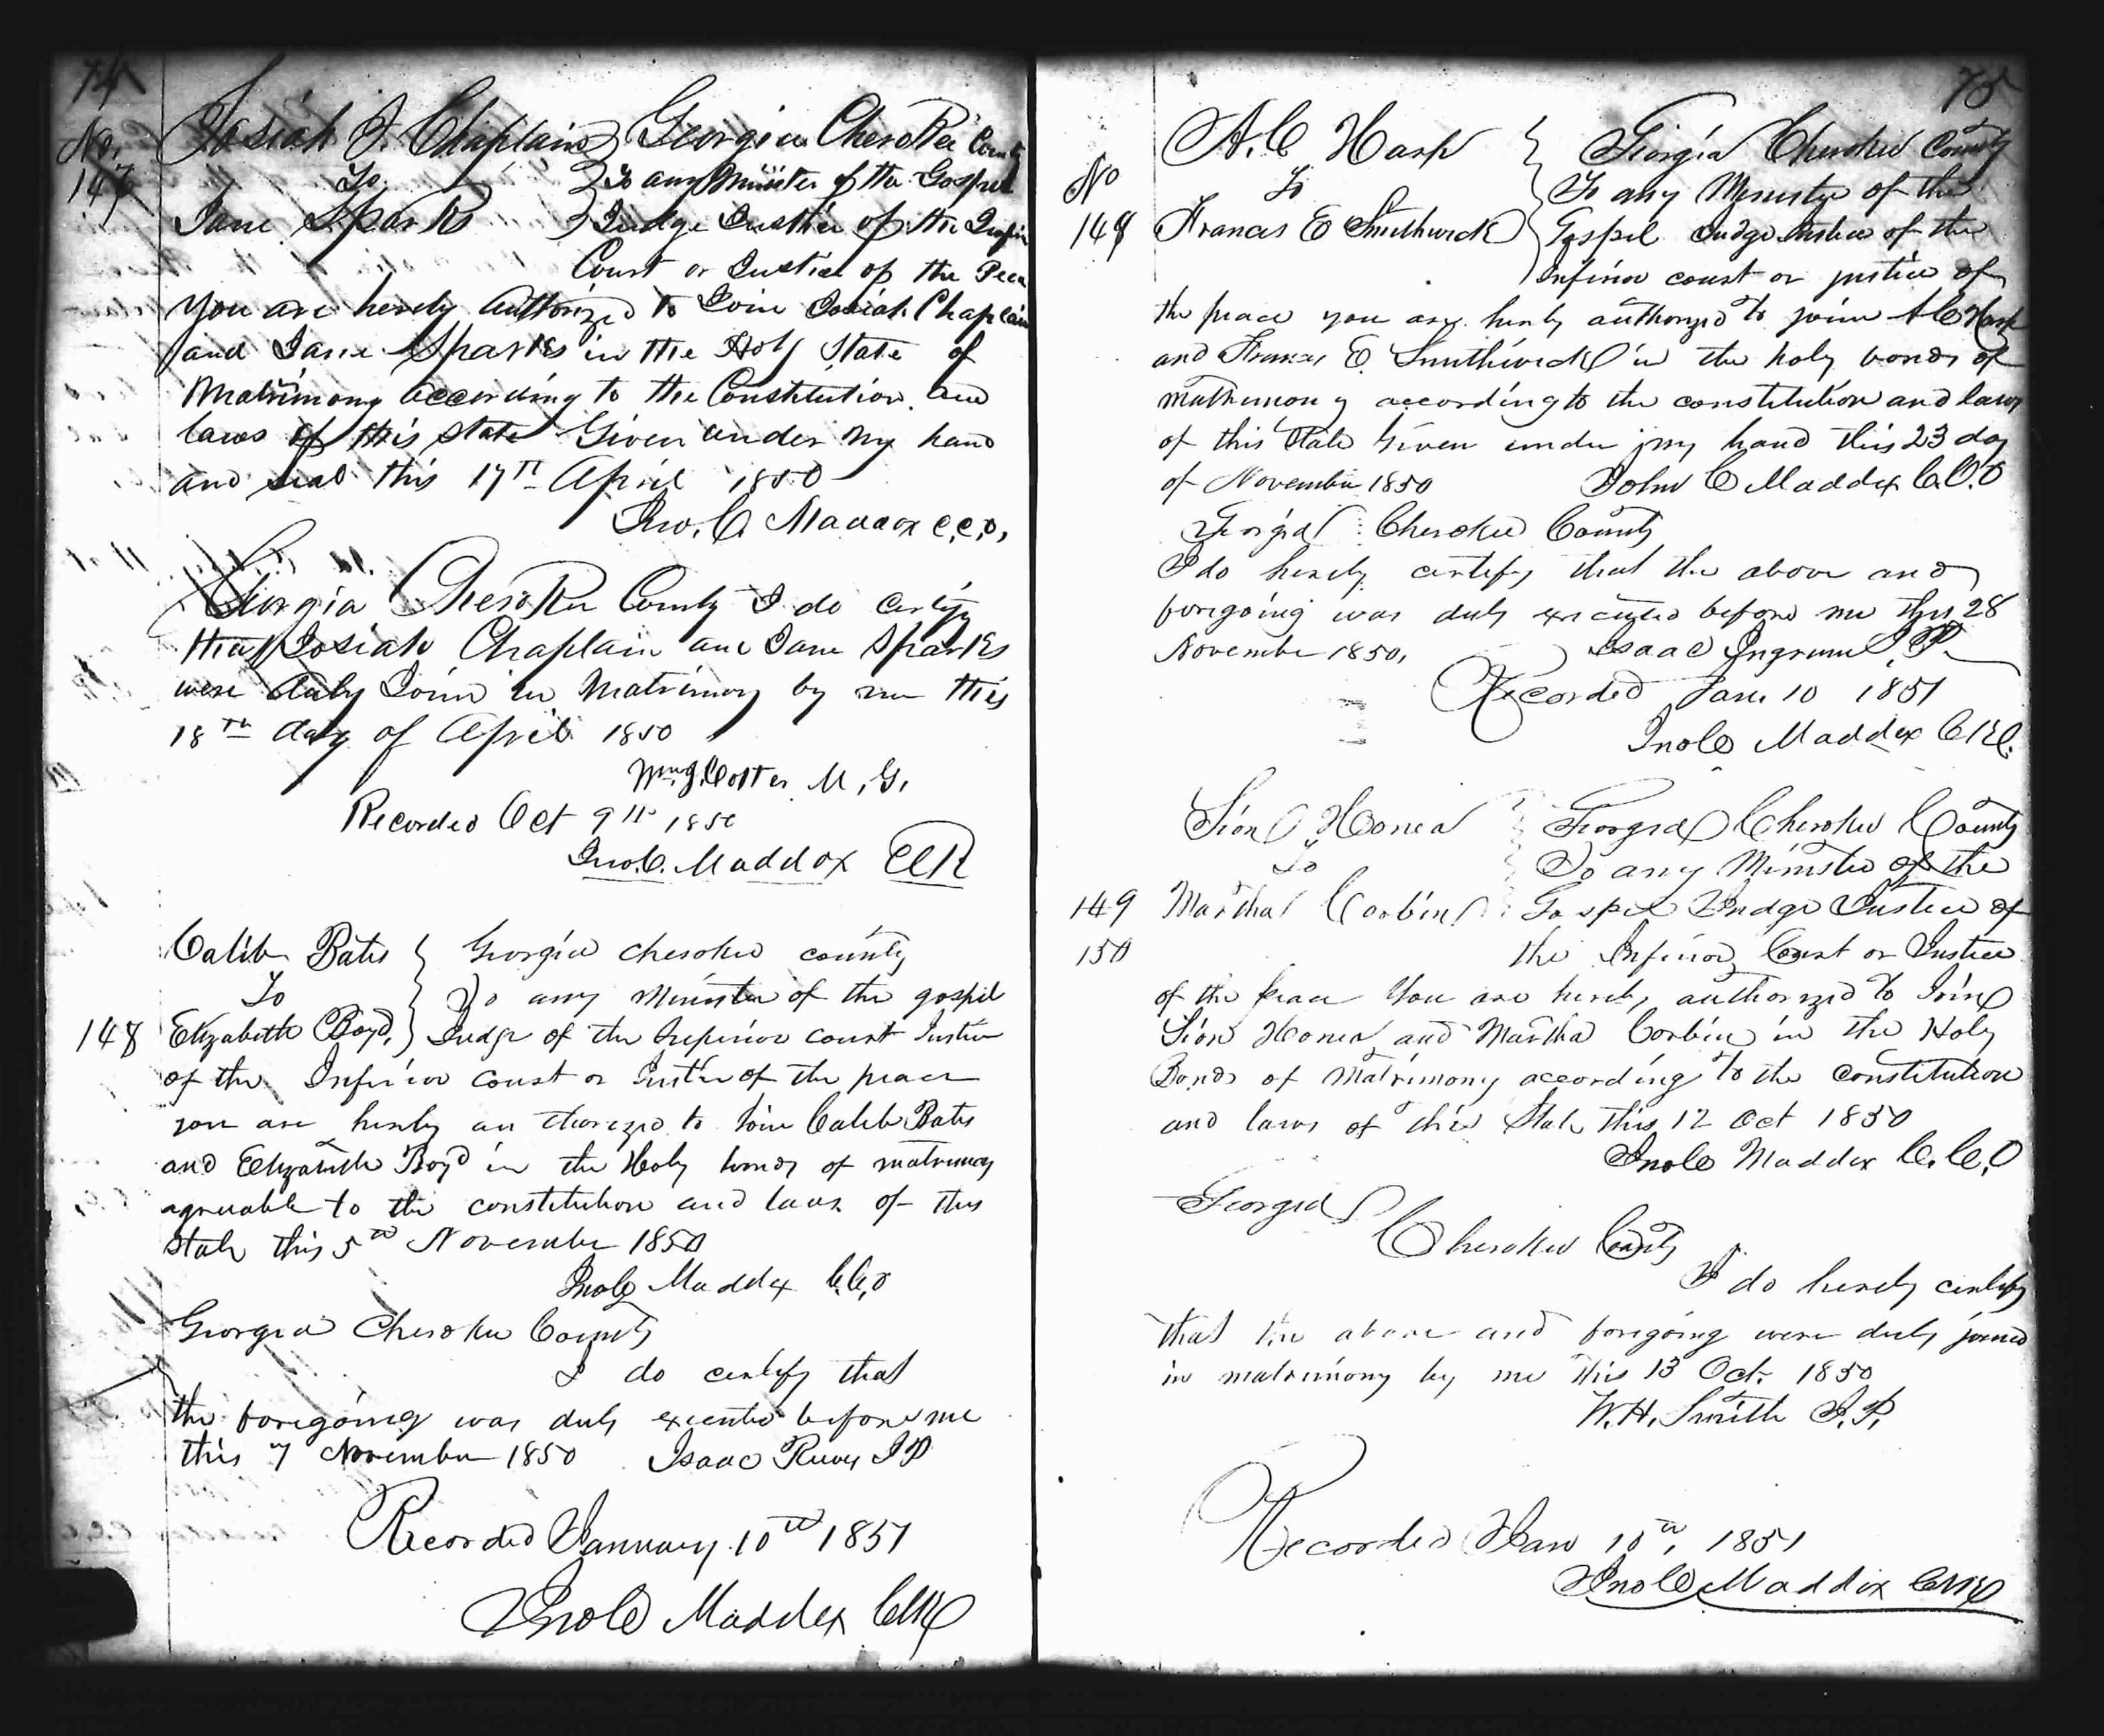 74
No. 147
Josiah J. Chaplain } Georgia Cherokee County
To } To any Minister of the Gospel
Jane Sparks } Judge Justice of the Inferior
Court or Justice of the Peace
You are hereby authorized to Join Josiah Chaplain
and Jane Sparks in the Holy State of
Matrimony according to the Constitution and
laws of this state Given under my hand
and seal this 17th April 1850
Jno. C. Maddox C.C.O.
Georgia Cherokee County I do certify
that Josiah Chaplain and Jane Sparks
were duly Join in Matrimony by me this
18th day of April 1850
Wm. J. Cotter M.G.
Recorded Oct 9th 1850
Jno. C. Maddox Clk
Calib Bates } Georgia Cherokee county
To } To any Minister of the gospel
148 Elizabeth Boyd, } Judge of the Superior court Justice
of the Inferior court or Justice of the peace
you are hereby authorized to Join Calib Bates
and Elizabeth Boyd in the Holy bonds of matrimony
agreeable to the constitution and laws of this
State this 5th November 1850
Jno C Maddox C.C.O
Georgia Cherokee County
I do certify that
the foregoing was duly executed before me
this 7 November 1850 Isaac Reeves JP
Recorded January 10th 1851
Jno C Maddox Clk
75
A. C. Harp } Georgia Cherokee County
No To } To any Minister of the
148 Francis E Smithwick } Gospel Judge Justice of the
Inferior court or justice of
the peace you are hereby authorized to joine A C Harp
and Frances E. Smithwick in the holy bonds of
mathimony according to the constitution and laws
of this State Given under my hand this 23 day
of November 1850 John C Maddox C.C.O
Georgia Cherokee County
I do hereby certify that the above and
foregoing was duly executed before me this 28
November 1850, Isaac Ingram J.P.
Recorded Jan. 10 1851
Jno C Maddox Clk.
Sion Honea } Georgia Cherokee County
To } To any Minister of the
149 Martha Corbin } Gospel Judge Justice of
150 the Inferior Court or Justice
of the peace You are hereby authorized to Join
Sion Honea and Martha Corbin in the Holy
Bonds of Matrimony according to the constitution
and laws of this State this 12 Oct 1850
Jno C Maddox C.C.O
Georgia
Cherokee County
I do hereby certify
that the above and foregoing were duly joined
in matrimony by me this 13 Oct. 1850
W. H. Smith J.P.
Recorded Jan 10th, 1851
Jno C Maddox Clk